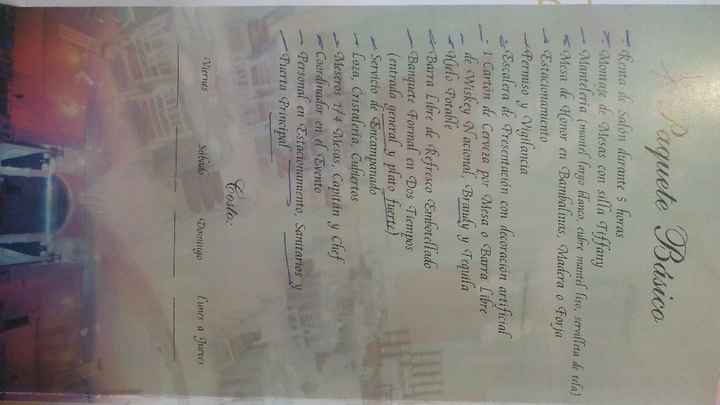 Paquete Básico
Renta de Salón durante 5 horas
Montaje de Mesas con silla Tiffany
Mantelería (mantel largo blanco, cubre mantel liso, servilleta de tela)
Mesa de Honor en Bambalinas, Madera o Forja
Estacionamiento
Permiso y Vigilancia
Escalera de Presentación con decoración artificial
1 Cartón de Cerveza por Mesa o Barra Libre
de Wiskey Nacional, Brandy y Tequila
Hielo Potable
Barra Libre de Refresco Embotellado
Banquete Formal en Dos Tiempos
(entrada general y plato fuerte)
Servicio de Encampanado
Loza, Cristalería, Cubiertos
Meseros 1/4 Mesas, Capitán y Chef
Coordinador en el Evento
Personal en Estacionamiento, Sanitarios y
Puerta Principal
Costo:
Viernes Sábado Domingo Lunes a Jueves